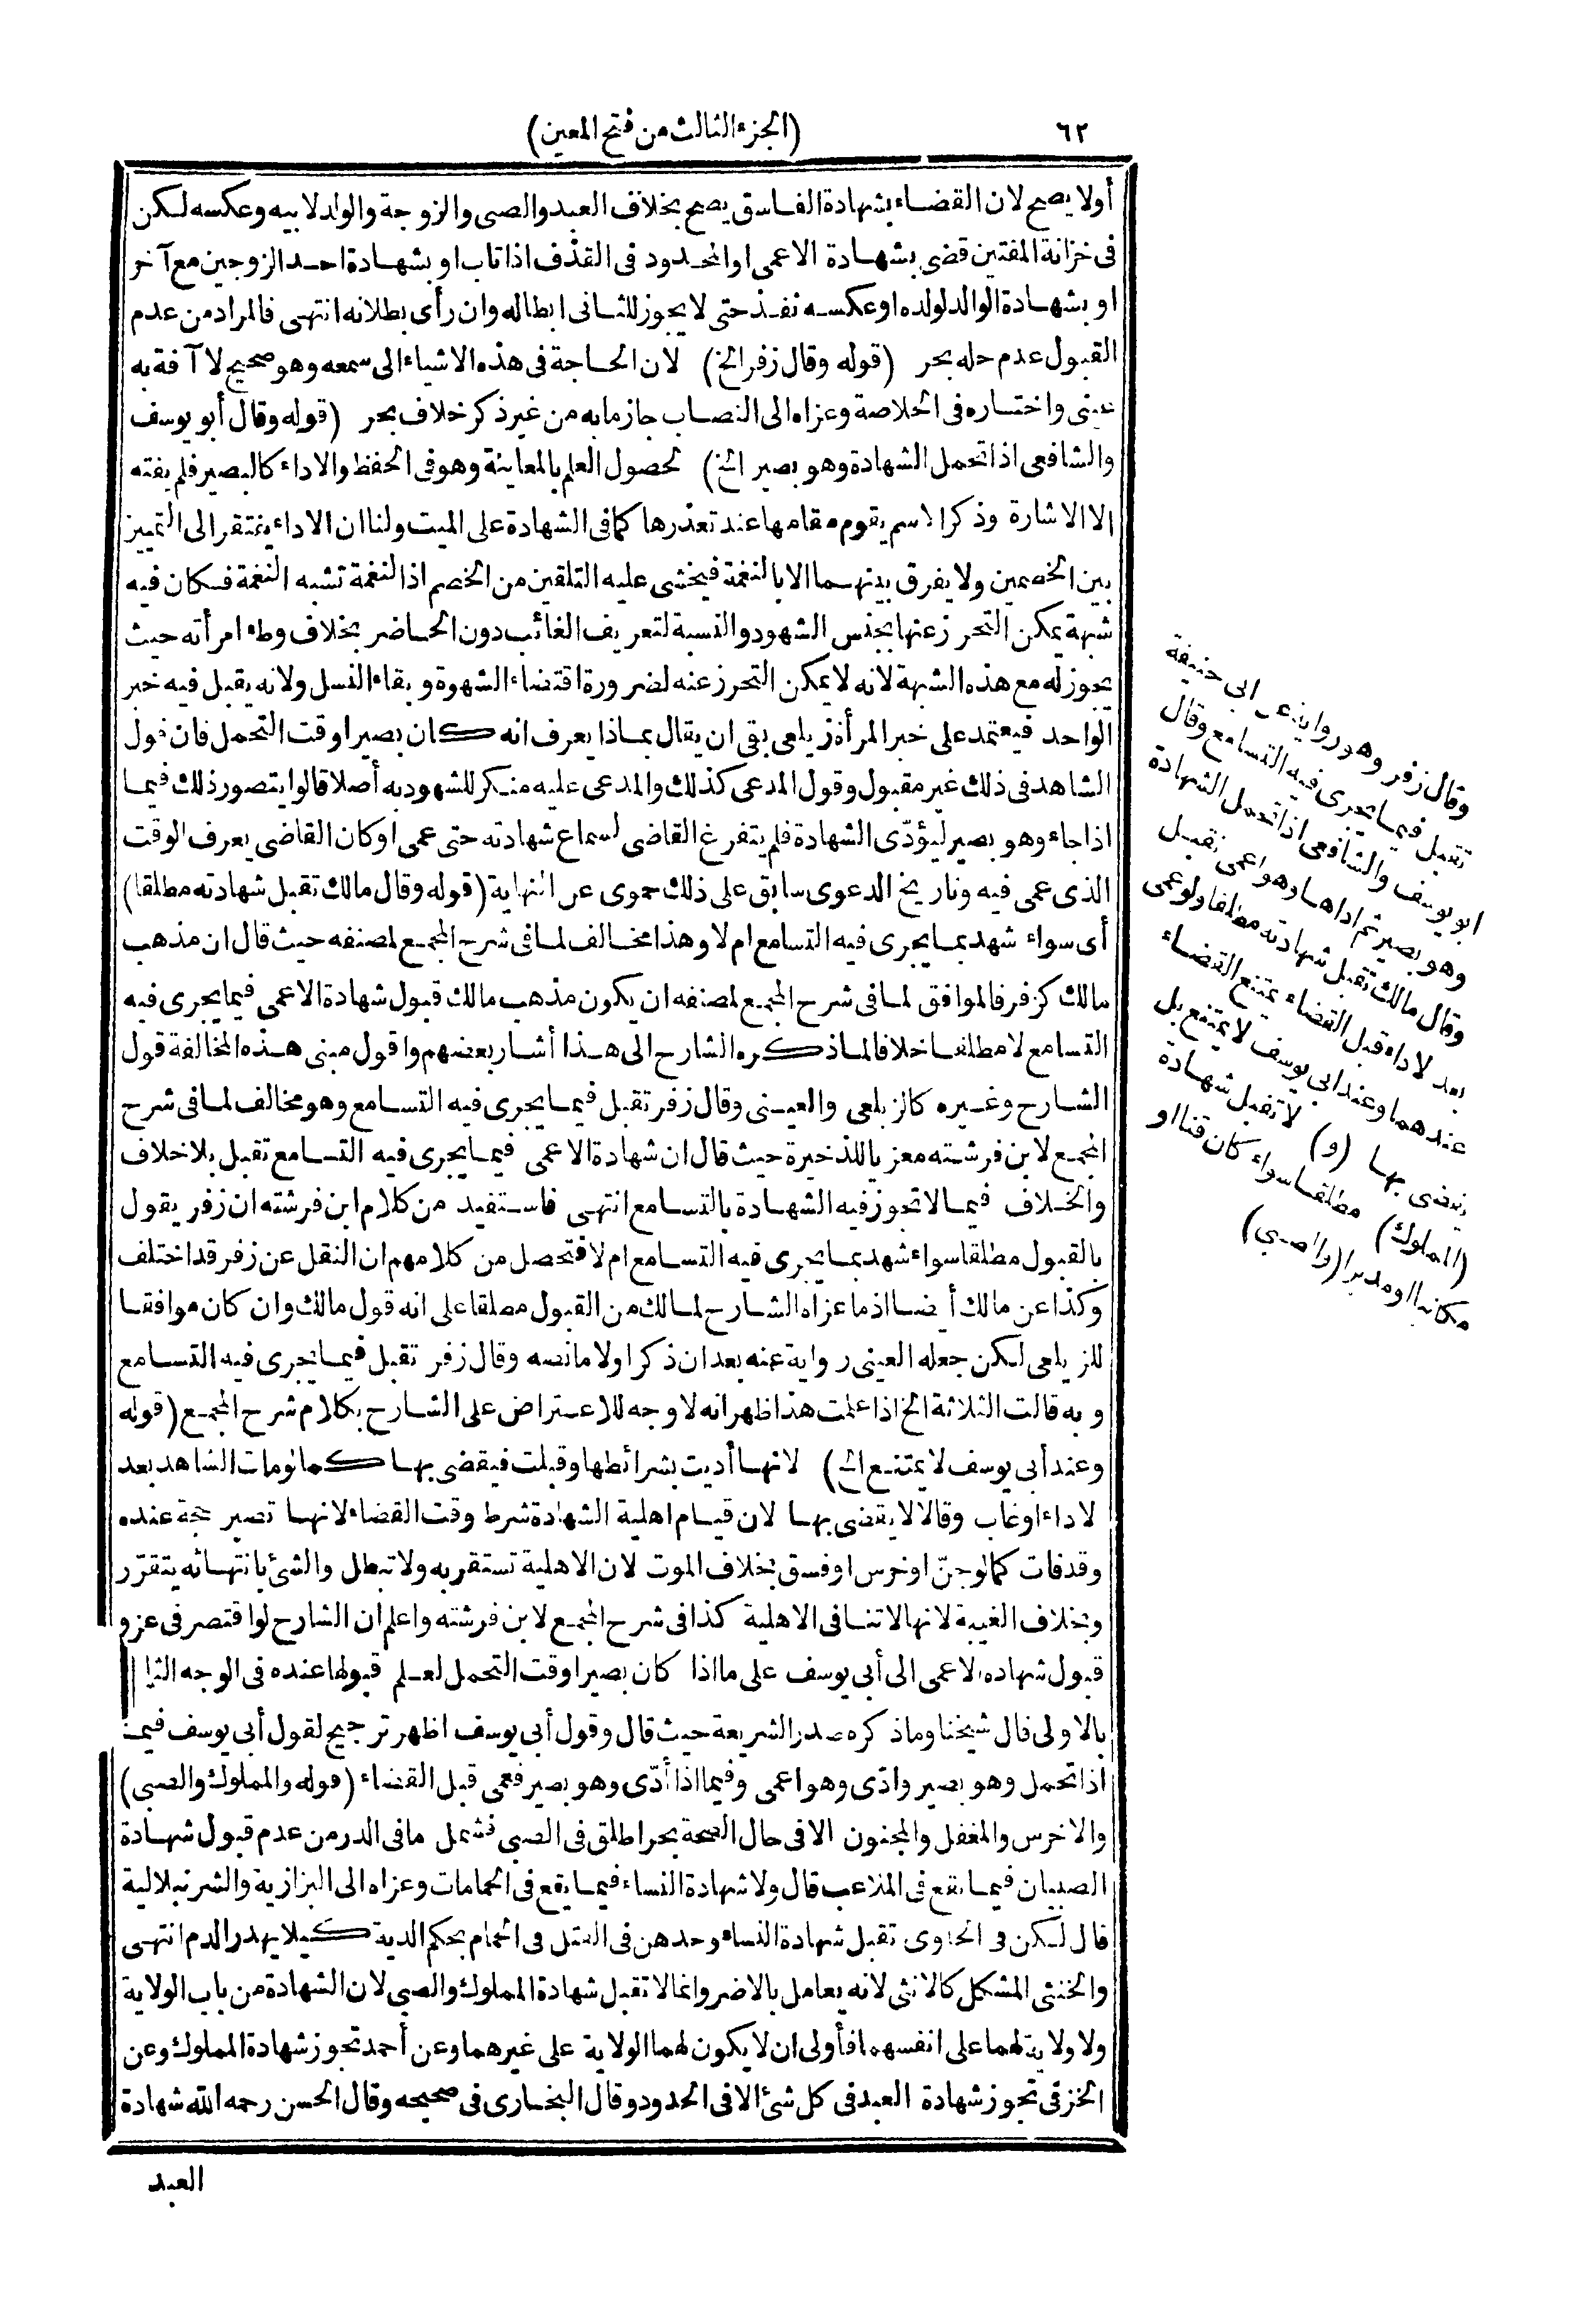 ٦٢
(الجزء الثالث من فتح المعين)
أولا يصح لان القضاء بشهادة الفاسق يصح بخلاف العبد والصبى والزوجة والولد لابيه وعكسه لكن
فى خزانة المفتين قضى بشهادة الاعمى او المحدود فى القذف اذا تاب او بشهادة احد الزوجين مع آخر
او بشهادة الوالد لولده او عكسه نفذ حتى لا يجوز للثانى ابطاله وان رأى بطلانه انتهى فالمراد من عدم
القبول عدم حله بحر (قوله وقال زفر الخ) لان الحاجة فى هذه الاشياء الى سمعه وهو صحيح لا آفة به
عينى واختاره فى الخلاصة وعزاه الى النصاب جازما به من غير ذكر خلاف بحر (قوله وقال أبو يوسف
والشافعى اذا تحمل الشهادة وهو بصير الخ) لحصول العلم بالمعاينة وهو فى الحفظ والاداء كالبصير فلم يفته
الا الاشارة وذكر الاسم يقوم مقامها عند تعذرها كما فى الشهادة على الميت ولنا ان الاداء يفتقر الى التمييز
بين الخصمين ولا يفرق بينهما الا بالنغمة فيخشى عليه التلقين من الخصم اذ النغمة تشبه النغمة فكان فيه
شبهة يمكن التحرز عنها بجنس الشهود والنسبة لتعريف الغائب دون الحاضر بخلاف وطء امرأته حيث
يجوز له مع هذه الشبهة لانه لا يمكن التحرز عنه لضرورة اقتضاء الشهوة وبقاء النسل ولانه يقبل فيه خبر
الواحد فيعتمد على خبر المرأة زيلعى بقى ان يقال بماذا يعرف انه كان بصيرا وقت التحمل فان قول
الشاهد فى ذلك غير مقبول وقول المدعى كذلك والمدعى عليه منكر للشهود به أصلا قالوا يتصور ذلك فيما
اذا جاء وهو بصير ليؤدّى الشهادة فلم يتفرغ القاضى لسماع شهادته حتى عمى او كان القاضى يعرف الوقت
الذى عمى فيه وتاريخ الدعوى سابق على ذلك حموى عن النهاية (قوله وقال مالك تقبل شهادته مطلقا)
أى سواء شهد بما يجرى فيه التسامع ام لا وهذا مخالف لما فى شرح المجمع لمصنفه حيث قال ان مذهب
مالك كزفر فالموافق لما فى شرح المجمع لمصنفه ان يكون مذهب مالك قبول شهادة الاعمى فيما يجرى فيه
التسامع لا مطلقا خلافا لما ذكره الشارح الى هذا أشار بعضهم واقول مبنى هذه المخالفة قول
الشارح وغيره كالزيلعى والعينى وقال زفر تقبل فيما يجرى فيه التسامع وهو مخالف لما فى شرح
المجمع لابن فرشته معزيا للذخيرة حيث قال ان شهادة الاعمى فيما يجرى فيه التسامع تقبل بلا خلاف
والخلاف فيما لا تجوز فيه الشهادة بالتسامع انتهى فاستفيد من كلام ابن فرشته ان زفر يقول
بالقبول مطلقا سواء شهد بما يجرى فيه التسامع ام لا فتحصل من كلامهم ان النقل عن زفر قد اختلف
وكذا عن مالك أيضا اذ ما عزاه الشارح لمالك من القبول مطلقا على انه قول مالك وان كان موافقا
للزيلعى لكن جعله العينى رواية عنه بعد ان ذكر اولا ما نصه وقال زفر تقبل فيما يجرى فيه التسامع
وبه قالت الثلاثة الخ اذا علمت هذا ظهر انه لا وجه للاعتراض على الشارح بكلام شرح المجمع (قوله
وعند أبى يوسف لا يمتنع الخ) لانها أديت بشرائطها وقبلت فيقضى بها كما لو مات الشاهد بعد
لاداء او غاب وقالا لا يقضى بها لان قيام اهلية الشهادة شرط وقت القضاء لانها تصير حجة عنده
وقد فات كما لو جنّ او خرس او فسق بخلاف الموت لان الاهلية تستقر به ولا تبطل والشئ بانتهائه يتقرّر
وبخلاف الغيبة لانها لا تنافى الاهلية كذا فى شرح المجمع لابن فرشته واعلم ان الشارح لو اقتصر فى عزو
قبول شهاده الاعمى الى أبى يوسف على ما اذا كان بصيرا وقت التحمل لعلم قبولها عنده فى الوجه الثا
بالاولى قال شيخنا وما ذكره صدر الشريعة حيث قال وقول أبى يوسف اظهر ترجيح لقول أبى يوسف فيما
اذا تحمل وهو بصير وادّى وهو اعمى وفيما اذا أدّى وهو بصير فعمى قبل القضاء (قوله والمملوك والصبى)
والاخرس والمغفل والمجنون الا فى حال الصحة بحر اطلق فى الصبى فشمل ما فى الدر من عدم قبول شهادة
الصبيان فيما يقع فى الملاعب قال ولا شهادة النساء فيما يقع فى الحمامات وعزاه الى البزازية والشرنبلالية
قال لكن فى الحاوى تقبل شهادة النساء وحدهن فى القتل فى الحمام بحكم الدية كيلا يهدر الدم انتهى
والخنثى المشكل كالانثى لانه يعامل بالاضر وانما لا تقبل شهادة المملوك والصبى لان الشهادة من باب الولاية
ولا ولاية لهما على انفسهما فأولى ان لا يكون لهما الولاية على غيرهما وعن أحمد تجوز شهادة المملوك وعن
الخرقى تجوز شهادة العبد فى كل شئ الا فى الحدود وقال البخارى فى صحيحه وقال الحسن رحمه الله شهادة
العبد
وقال زفر وهو رواية عن ابى حنيفة
تقبل فيما يجرى فيه التسامع وقال
ابو يوسف والشافعى اذا تحمل الشهادة
وهو بصير ثم اداها وهو اعمى تقبل
وقال مالك تقبل شهادته مطلقا ولو عمى
بعد لاداء قبل القضاء يمتنع القضاء
عندهما وعند ابى يوسف لا يمتنع بل
يقضى بها (و) لا تقبل شهادة
(المملوك) مطلقا سواء كان قنا او
مكاتبا او مدبرا (والصبى)